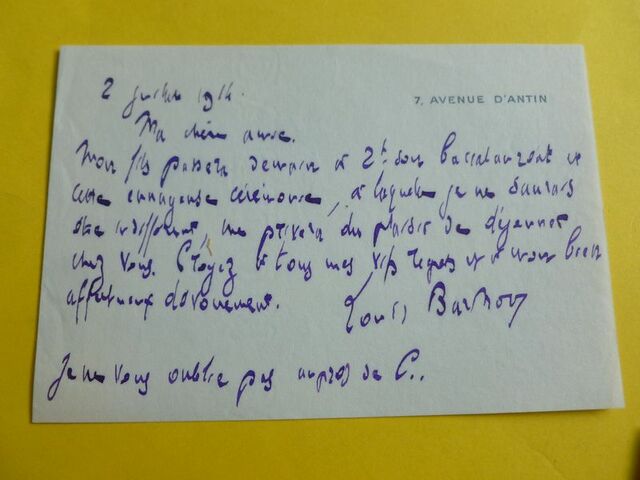 7, AVENUE D'ANTIN
2 juillet 1914.
Ma chère amie.
Mon fils passera demain à 2h son baccalauréat et
cette ennuyeuse cérémonie, à laquelle je ne saurais
être indifférent, me privera du plaisir de déjeuner
chez vous. Croyez à tous mes vifs regrets et à mon bien
affectueux dévouement. Louis Barthou
Je ne vous oublie pas auprès de C..